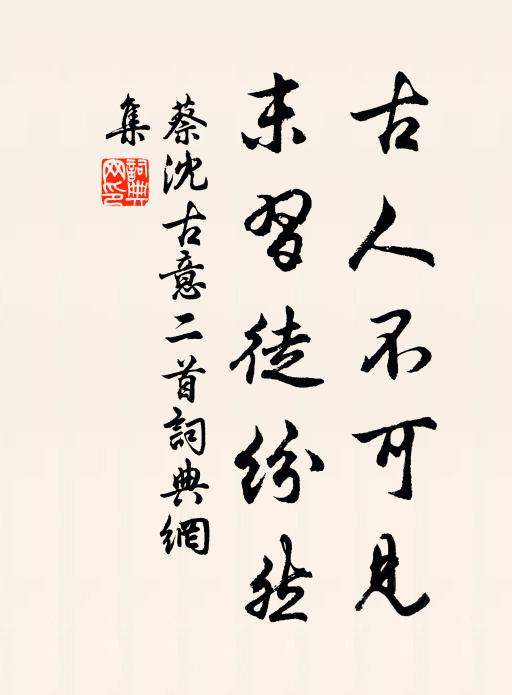 古人不可見
末習徒紛然
蔡沈古意二首詞典網
集
詞典網印